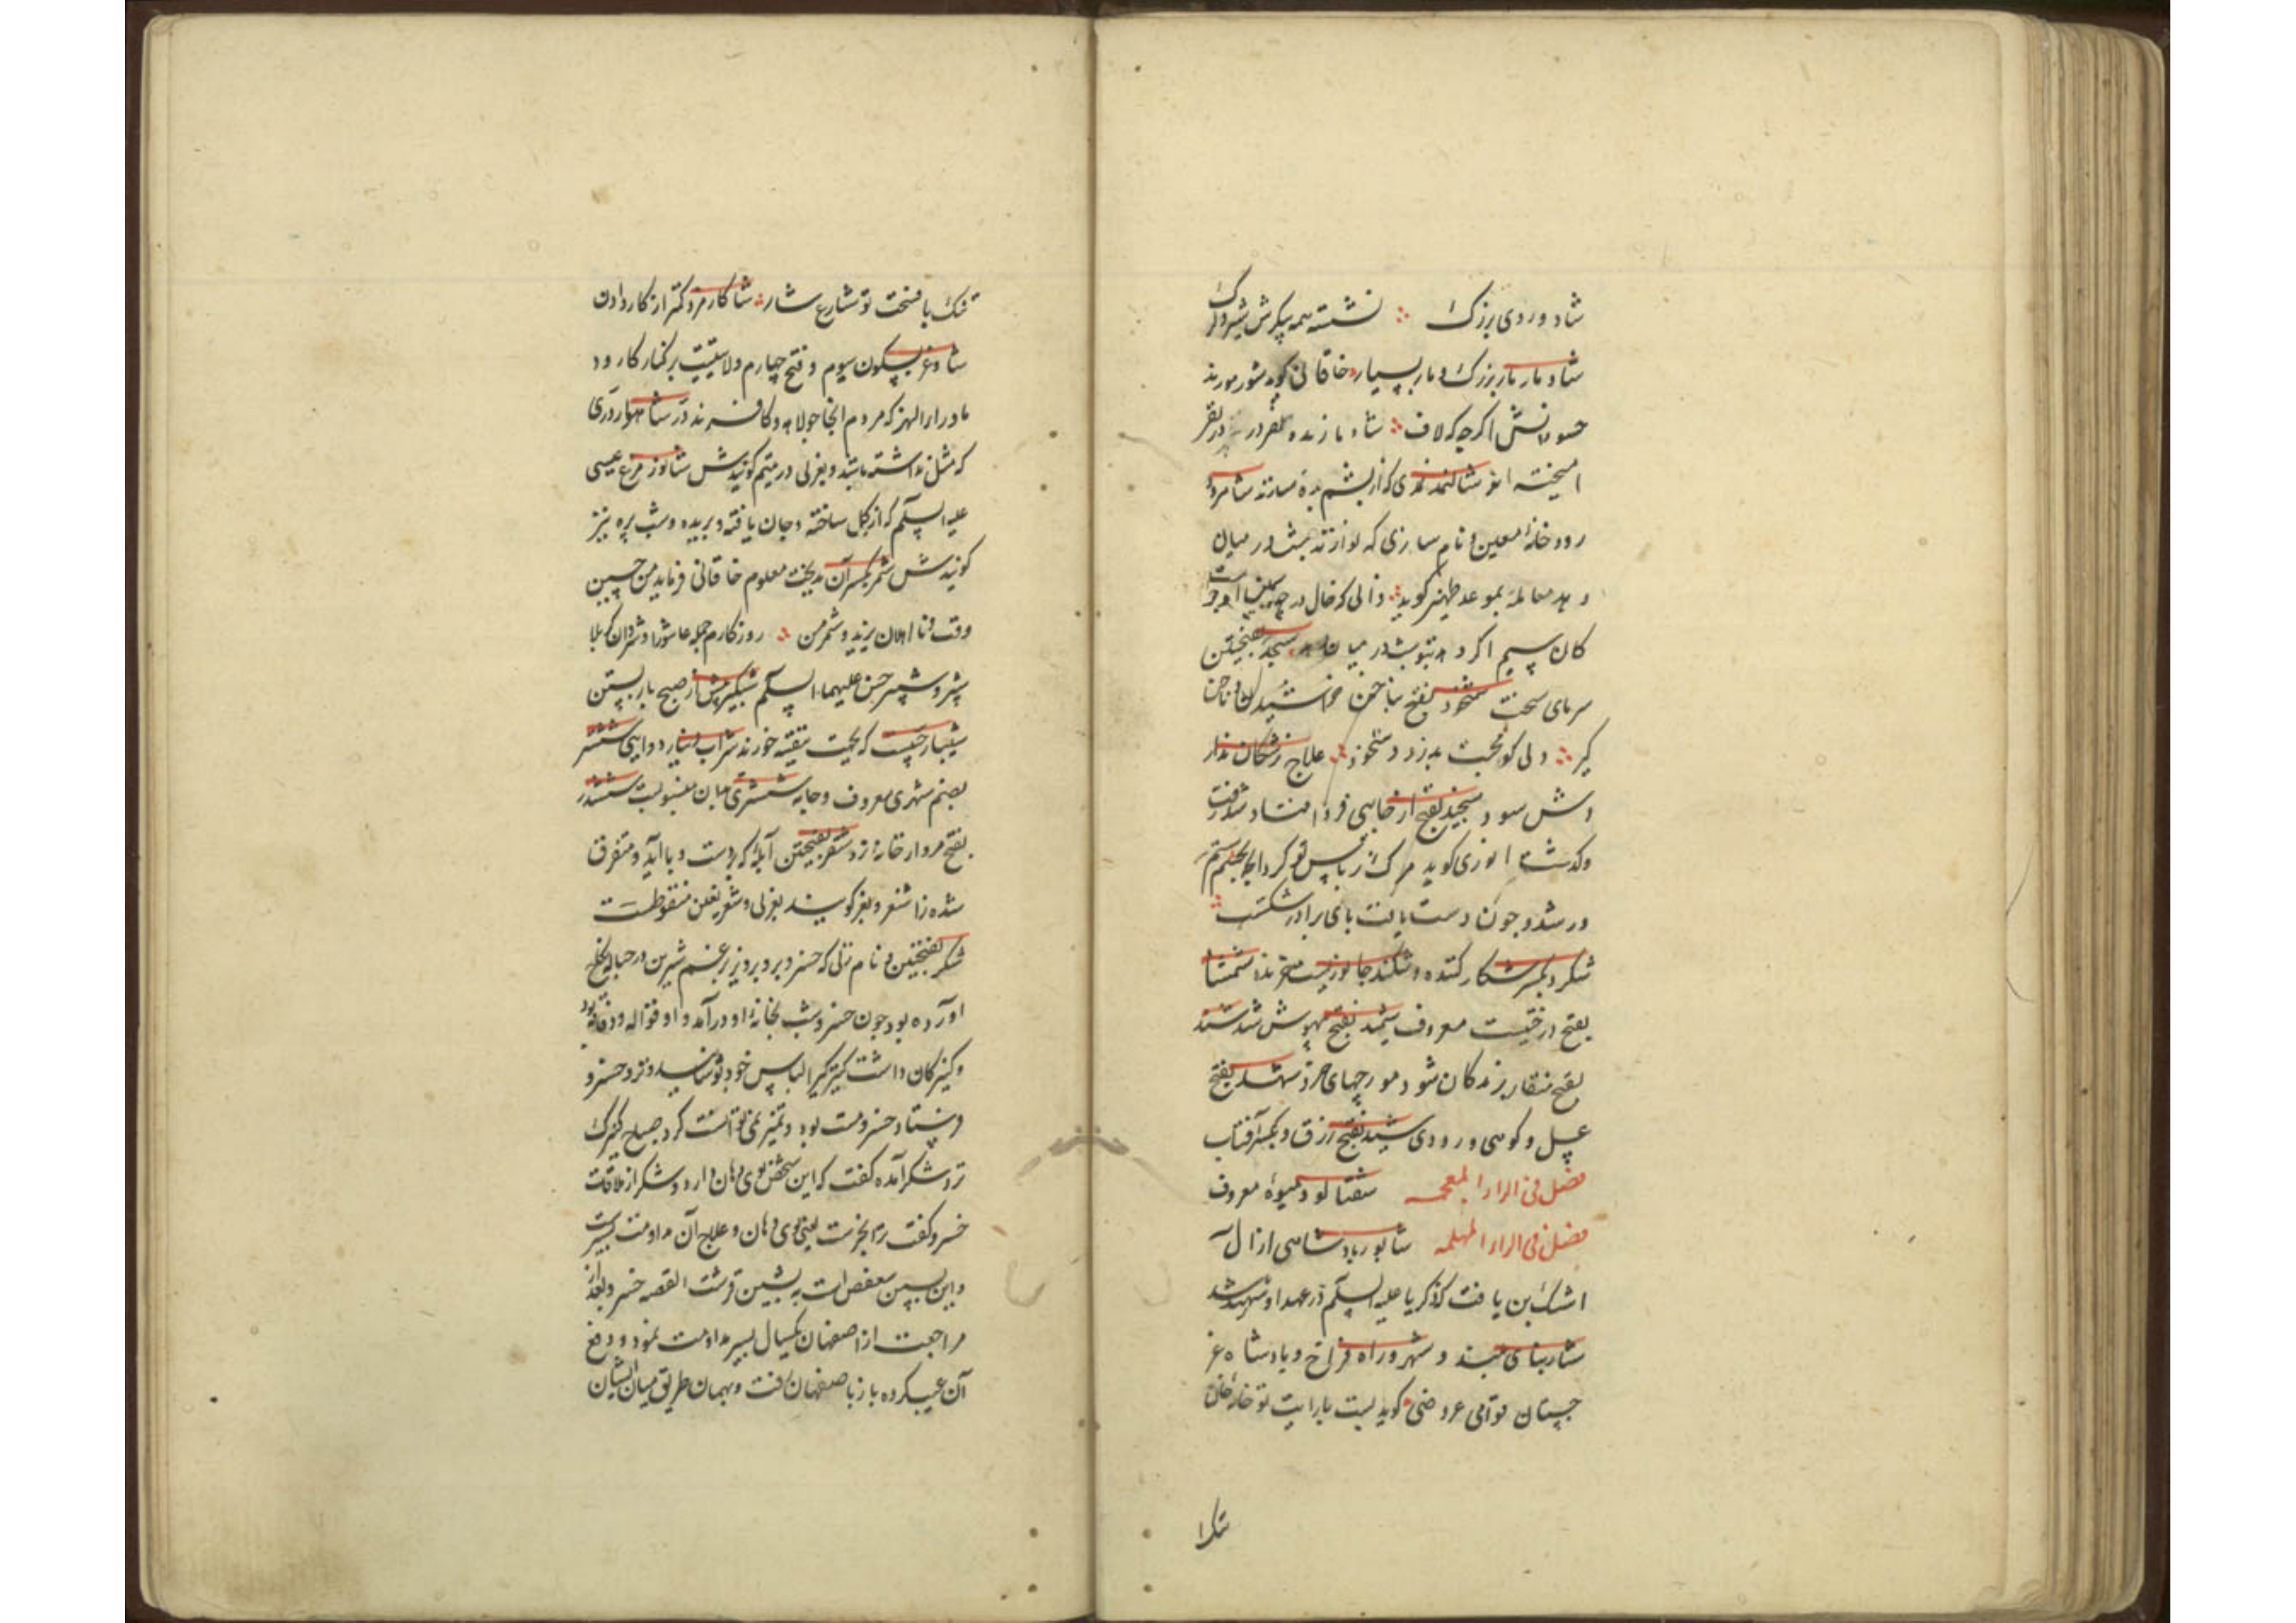 شاد وردی بزرگ ∴ نشسته همه پیکرش شیر و گرگ
شاد مار مار بزرگ و مار بسیار خاقانی گوید شور مورند
حسودانش اگرچه که لاف ∴ شاه مار زنده
امیخته اند شالنمد نمدی که از پشم بره سازند شامرود
رودخانهٔ معین و نام سازی که نوازند شادر میان
و بعد معامله بموعد ظهیر گوید ∴
کان سیم اگر
سرمای سخت شخود بفتح بناخن خراشیدن و ناخن
کیر ∴ دلی کو محبت بدرد و شخود ∴ علاج پزشکان ندارد
وش سود شخید بفتح از جایی فرو افتاد شد رفت
وکذشت انوری گوید مرک از پس تو کرد
در شد و چون دست یافت پای برادر شکست ∴
شکرد بکسر شکار کننده و شکند جانوریست سرخ شمشاد
بفتح درختیست معروف شمید بفتح بیهوش شد شند
بفتح منقار پرندگان شود مورچهای خرد شهد بفتح
عسل و کوهی و رودی شید بفتح زرق و بکسر آفتاب
فصل فی الراء المعجمه شفتالو میوهٔ معروف
فصل فی الراء المهمله شاپور پادشاهی از آل
اشک بن یافت که ذکریا علیه السلم در عهد او شهید شد
شار بنای بلند و شهر و راه فراخ و پادشاه غر
جستان قوامی عروضی گوید بست بارایت تو خانهٔ خان
تنکرا
تنک با فسحت تو شارع شار ∴ شاکار مزد کمتر از کار دادن
شاوغر بسکون سیوم و فتح چهارم ولایتیست بر کنار کار ود
ماوراء النهر که مردم انجا جولاه و کافرند در شاهوار دری
که مثل نداشته باشد و بعربی در یتیم گویندش شبانور مرغ عیسی
علیه السلم که از کل ساخته و جان یافته و پریده و شب پره نیز
گویندش شمر بکسر آن بدبخت معلوم خاقانی فرماید من حسین
وقت و نا اهلان یزید و شمر من ∴ روزکارم جمله عاشورا و شروان کربلا
شبر و شبیر حسن علیهما السلم شبکیر پیش از صبح بار بستن
شبیار حبیست که بجهت تنقیه خورند شراب دینار دوایی ششتر
بضم شهری معروف و جامه ششتری بدان منسوبست ششدر
بفتح مرد از خانه نرد شغر بفتحتین آبله که بر دست و پا آید و متفرق
شده را شغر و بغر گویند بعربی و شغر بغین منقوطست
شکر بفتحتین نام زنی که خسرو پرویز بر غم شیرین در حباله نکاح
اورده بود چون خسرو شب بخانهٔ او درآمد او قواله و دقاقه بود
و کنیزکان داشت کنیزکی را لباس خود پوشانید و نزد خسرو
فرستاد خسرو مست بود و تمیز نمی توانست کرد صباح کنیزک
نزد شکر آمده گفت که این شخص بوی دهان دارد و شکر از ملاقات
خسرو گفت ترا بخرست یعنی بوی دهان و علاج آن مداومت سیر است
و این بسین سعفص است نه بشین قرشت القصه خسرو بعد از
مراجعت از اصفهان یکسال بسیر مداومت نمود و دفع
آن عیب کرده باز باصفهان رفت و بهمان طریق میان ایشان